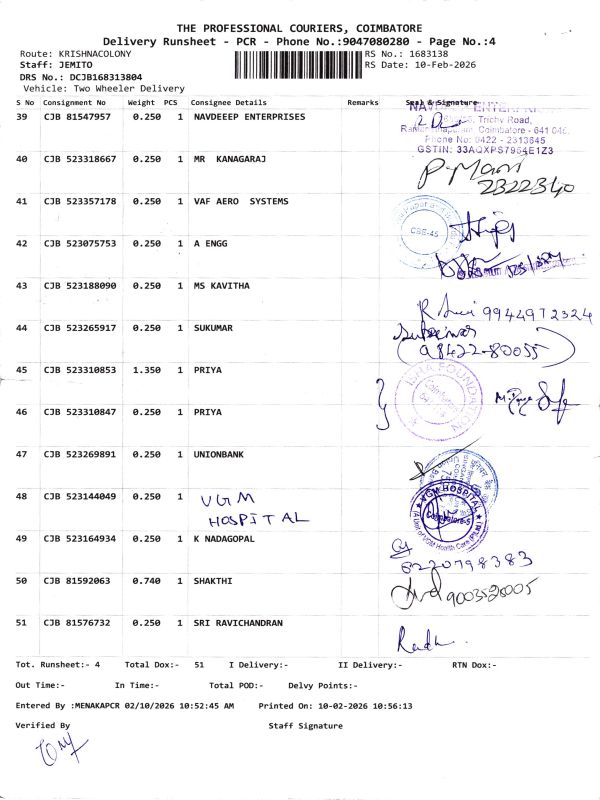 THE PROFESSIONAL COURIERS, COIMBATORE
Delivery Runsheet - PCR - Phone No.:9047080280 - Page No.:4
Route: KRISHNACOLONY RS No.: 1683138
Staff: JEMITO RS Date: 10-Feb-2026
DRS No.: DCJB168313804
Vehicle: Two Wheeler Delivery
S No Consignment No Weight PCS Consignee Details Remarks Seal & Signature
39 CJB 81547957 0.250 1 NAVDEEEP ENTERPRISES
Trichy Road,
Coimbatore - 641 045.
Phone No: 0422 - 2313645
GSTIN: 33AQXPS7954E1Z3
40 CJB 523318667 0.250 1 MR KANAGARAJ
P. Mani
2322340
41 CJB 523357178 0.250 1 VAF AERO SYSTEMS
CBE-45
42 CJB 523075753 0.250 1 A ENGG
43 CJB 523188090 0.250 1 MS KAVITHA
9944972324
44 CJB 523265917 0.250 1 SUKUMAR
Sukumar
(98422-80055)
45 CJB 523310853 1.350 1 PRIYA
ISHA FOUNDATION
46 CJB 523310847 0.250 1 PRIYA
47 CJB 523269891 0.250 1 UNIONBANK
48 CJB 523144049 0.250 1 VGM HOSPITAL
VGM HOSPITAL
Coimbatore-5
(A Unit of VGM Health Care (P) Ltd.)
49 CJB 523164934 0.250 1 K NADAGOPAL
8220798383
50 CJB 81592063 0.740 1 SHAKTHI
9003528005
51 CJB 81576732 0.250 1 SRI RAVICHANDRAN
Radh
Tot. Runsheet:- 4 Total Dox:- 51 I Delivery:- II Delivery:- RTN Dox:-
Out Time:- In Time:- Total POD:- Delvy Points:-
Entered By :MENAKAPCR 02/10/2026 10:52:45 AM Printed On: 10-02-2026 10:56:13
Verified By Staff Signature